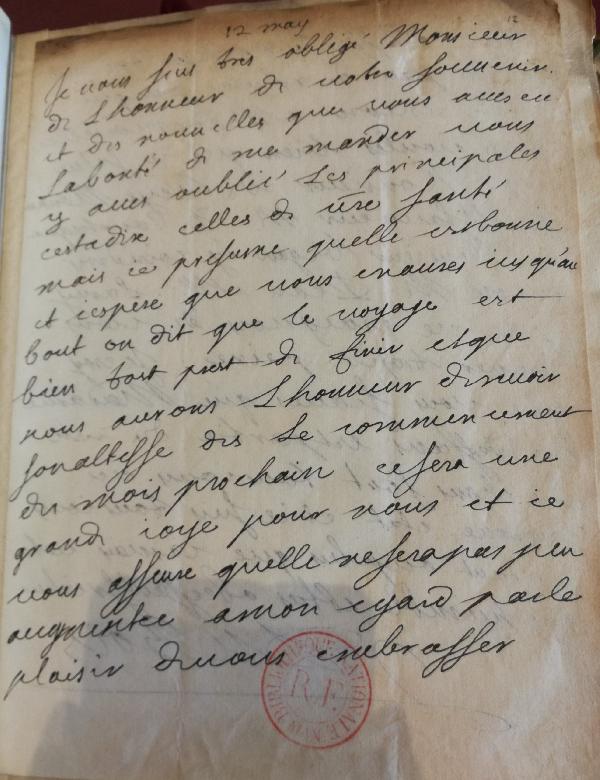 12 may
12
Je vous suis tres obligé Monsieur
de Lhonneur de votre souvenir
et des nouvelles que vous aues eu
Labonté de me mander vous
y aues oublié Les principales
cestadire celles de vre santé
mais ie presume quelle est bonne
et iespere que vous en aures iusqu'au
bout on dit que le voyage est
bien tost prest de finir et que
nous aurons Lhonneur de revoir
sonaltesse des Le commencement
du mois prochain cesera une
grande ioye pour nous et ie
vous asseure quelle nesera pas peu
augmentée a mon egard par le
plaisir de vous embrasser
BIBLIOTHEQUE NATIONALE
R.F.